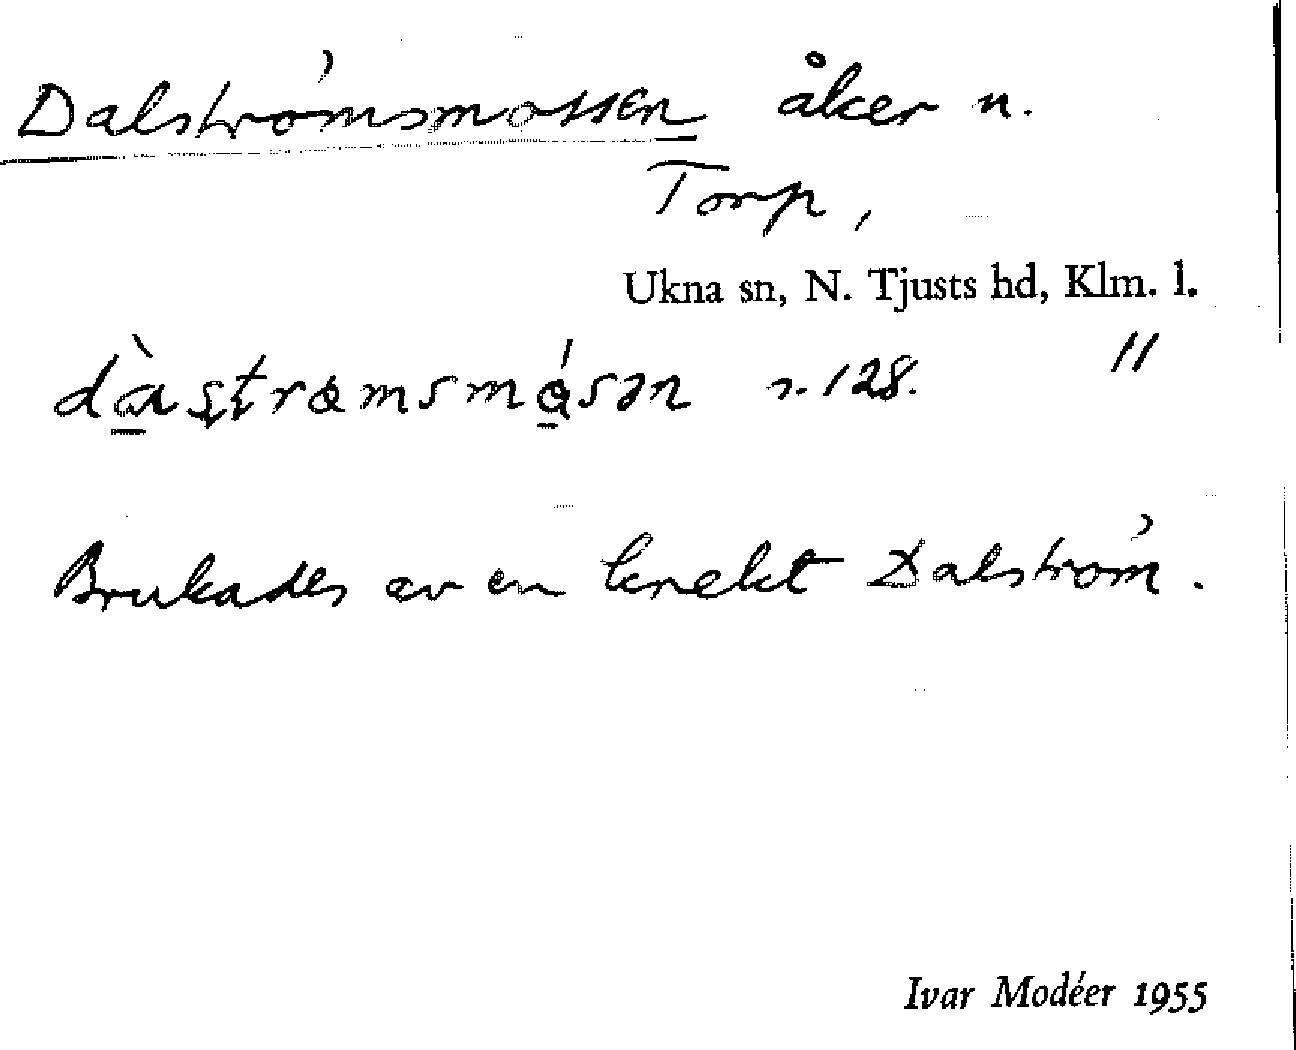 Dalströmsmossen åker n.
Torp,
Ukna sn, N. Tjusts hd, Klm. l.
dàstrømsmǻsən n. 128. "
Brukades av en knekt Dalström.
Ivar Modéer 1955